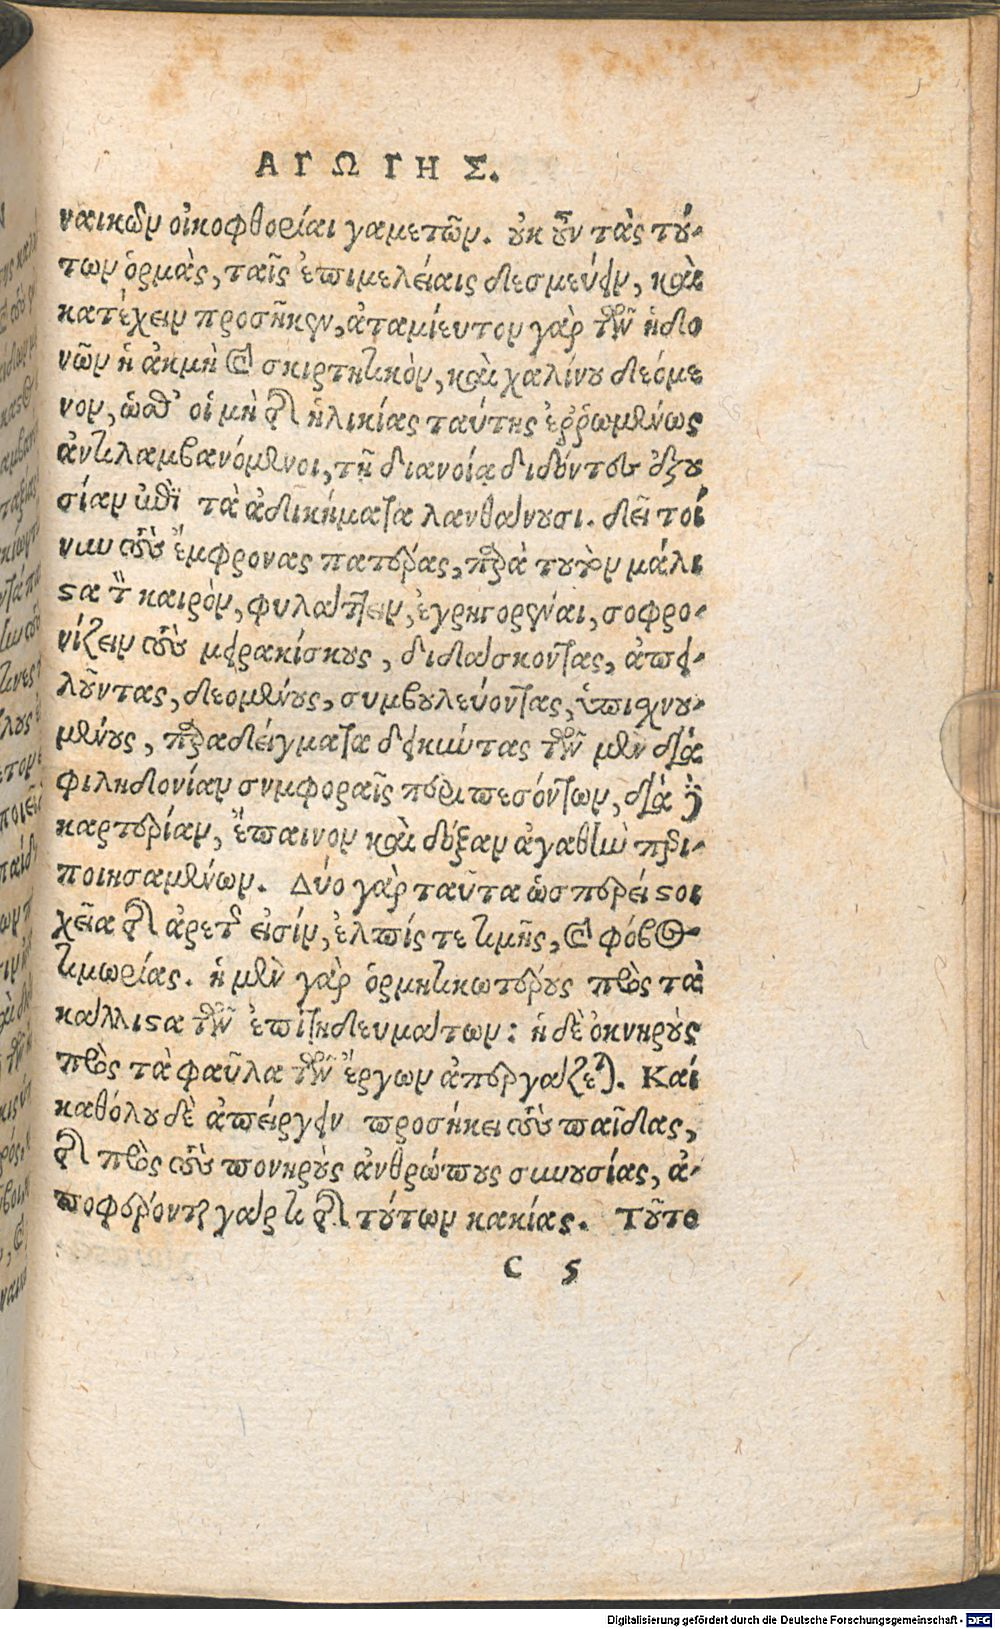 ΑΓΩΓΗΣ.
ναικῶν οἰκοφθορίαι γαμετῶν. οὐκ οὖν τὰς τού-
των ὁρμὰς, ταῖς ἐπιμελείαις δεσμεύειν, καὶ
κατέχειν προσῆκεν, ἀταμίευτον γὰρ τῶν ἡδο
νῶν ἡ ἀκμὴ καὶ σκιρτητικὸν, καὶ χαλίνου δεόμε
νον, ὥσθ' οἱ μὴ τῆς ἡλικίας ταύτης ἐῤῥωμένως
ἀντιλαμβανόμενοι, τῇ διανοίᾳ διδόντες ἐξου
σίαν ἐπὶ τὰ ἀδικήματα λανθάνουσι. δεῖ τοί
νυν τοὺς ἔμφρονας πατέρας, παρὰ τοῦτον μάλι
στα τὸν καιρὸν, φυλάττειν, ἐγρηγορέναι, σοφρο-
νίζειν τοὺς μειρακίσκους, διδάσκοντας, ἀπει-
λοῦντας, δεομένους, συμβουλεύοντας, ὑπισχνου-
μένους, παραδείγματα δεικνύντας τῶν μὲν διὰ
φιληδονίαν συμφοραῖς περιπεσόντων, διὰ δὲ
καρτερίαν, ἔπαινον καὶ δόξαν ἀγαθὴν περι-
ποιησαμένων. Δύο γὰρ ταῦτα ὡσπερεὶ στοι
χεῖα τῆς ἀρετῆς εἰσίν, ἐλπίς τε τιμῆς, καὶ φόβος
τιμωρίας. ἡ μὲν γὰρ ὁρμητικωτέρους πρὸς τὰ
κάλλιστα τῶν ἐπιτηδευμάτων: ἡ δὲ ὀκνηροὺς
πρὸς τὰ φαῦλα τῶν ἔργων ἀπεργάζεται. Καί
καθόλου δὲ ἀπείργειν προσήκει τοὺς παῖδας,
τῆς πρὸς τοὺς πονηροὺς ἀνθρώπους συνουσίας, ἀ-
ποφέρονται γάρ τι τῆς τούτων κακίας. Τοῦτο
C 5
Digitalisierung gefördert durch die Deutsche Forschungsgemeinschaft - DFG